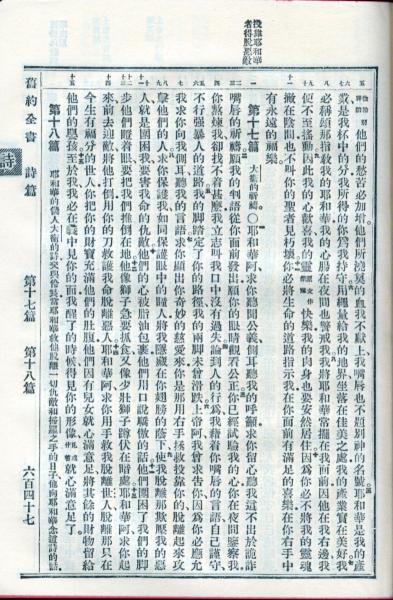 投靠耶和華
者得脫惡敵
他們的愁苦必加增他們所澆奠的血我不獻上我嘴唇也不題別神的名號耶和華是我的產
業是我杯中的分我所得的你為我持守用繩量給我的地界坐落在佳美之處我的產業實在美好我
必稱頌那指教我的耶和華我的心腸在夜間也警戒我我將耶和華常擺在我面前因他在我右邊我
便不至搖動因此我的心歡喜我的靈快樂我的肉身也要安然居住因為你必不將我的靈魂
撇在陰間也不叫你的聖者見朽壞你必將生命的道路指示我在你面前有滿足的喜樂在你右手中
有永遠的福樂
第十七篇 大衛的祈禱 ○耶和華阿求你聽聞公義側耳聽我的呼籲求你留心聽我這不出於詭詐
嘴唇的祈禱願我的判語從你面前發出願你的眼睛觀看公正你已經試驗我的心你在夜間鑒察我
你熬煉我卻找不着甚麼我立志叫我口中沒有過失論到人的行為我藉着你嘴唇的言語自己謹守
不行強暴人的道路我的脚踏定了你的路徑我的兩脚未曾滑跌上帝阿我曾求告你因為你必應允
我求你向我側耳聽我的言語求你顯出你奇妙的慈愛來你是那用右手拯救投靠你的脫離起來攻
擊他們的人求你保護我如同保護眼中的瞳人將我隱藏在你翅膀的蔭下使我脫離那欺壓我的惡
人就是圍困我要害我命的仇敵他們的心被脂油包裹他們用口說驕傲的話他們圍困了我們的脚
步他們瞪着眼要把我們推倒在地他像獅子急要抓食又像少壯獅子蹲伏在暗處耶和華阿求你起
來前去迎敵將他打倒用你的刀救護我命脫離惡人耶和華阿求你用手救我脫離世人脫離那只在
今生有福分的世人你把你的財寶充滿他們的肚腹他們因有兒女就心滿意足將其餘的財物留給
他們的嬰孩至於我我必在義中見你的面我醒了的時候得見你的形像就心滿意足了
第十八篇 耶和華的僕人大衛的詩交與伶長當耶和華救他脫離一切仇敵和掃羅之手的日子他向耶和華念這詩的話
舊約全書 詩篇 第十七篇 第十八篇 六百四十七
詩